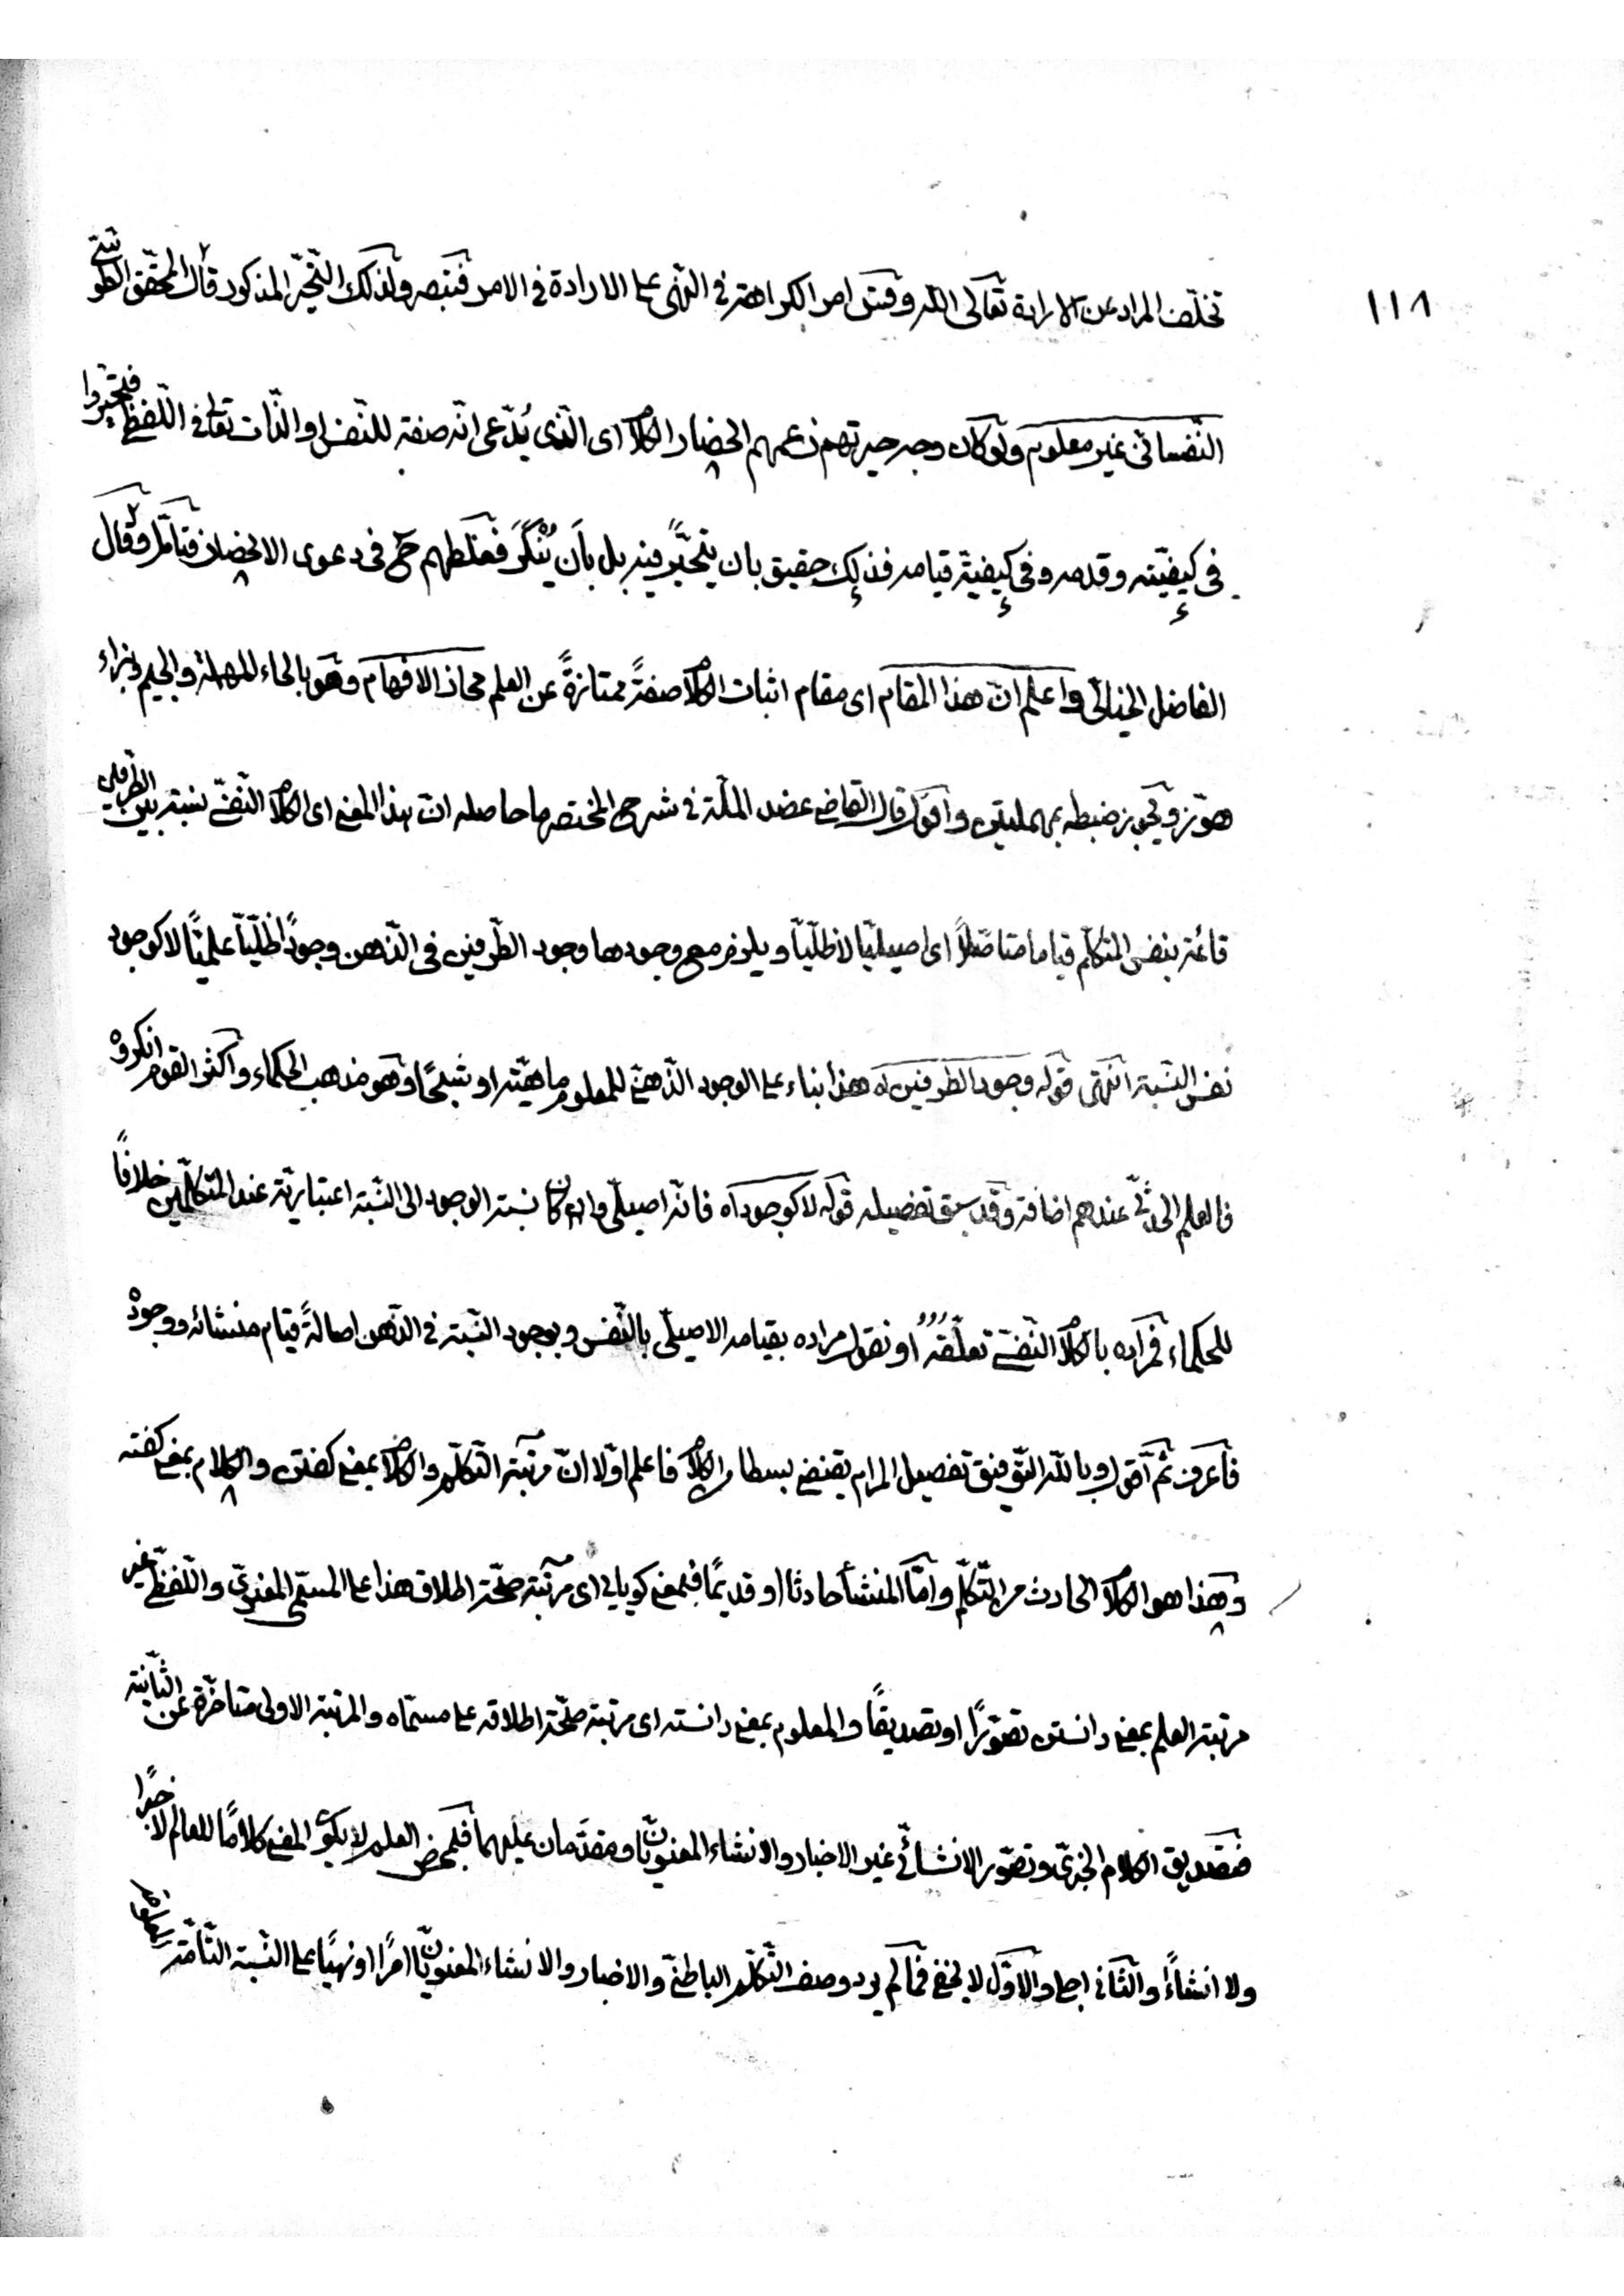 ١١٨
تخلّف المراد عن الارادة تعالى الله وقس امر الكراهة في النهى على الارادة في الامر فتبصر ولذلك التّحيّر المذكور قال المحقّق الطّوسىّ
النّفسانى غير معلوم ولو كان وجه حيرتهم زعمهم انحصار الكلام اى الّذى يُدّعى انّه صفة للنّفس او الذّات تعالى في اللّفظىّ فتحيّروا
في كيفيّته وقدمه وفى كيفيّة قيامه فذلك حقيق بان يتحيّر فيه بل بأن يُنْكَرَ فغلطهم ح في دعوى الانحصار فتأمّل وقال
الفاضل الخيالىّ واعلم انّ هذا المقام اى مقام اثبات الكلام صفةً ممتازةً عن العلم محاز الافهام وهو بالحاء المهملة والجيم وبزاء
هوّز ويجوز ضبطه بمهملتين واقول قال القاضى عضد الملّة في شرح المختصر ما حاصله انّ هذا المعنى اى الكلام النّفسىّ نسبة بين الطّرفين
قائمة بنفس المتكلّم قياما متاصّلاً اى اصيليّا لا ظلّيّا ويلزم مع وجودها وجود الطّرفين في الذّهن وجودًا ظلّيّا علميّا لا كوجود
نفس النّسبة انتهى قوله وجود الطرفين اه هذا بناء على الوجود الذّهنىّ للمعلوم ماهيّته او شبحًا وهو مذهب الحكماء واكثر القوم انكروه
فالعلم الحادثىّ عندهم اضافة وقد سبق تفصيله قوله لا كوجود اه فانّه اصيلىّ وان كان نسبة الوجود الى النّسبة اعتباريّة عند المتكلّمين خلافًا
للحكماء فمراده بالكلام النّفسىّ تعلّقه او نقول مراده بقيامه الاصيلىّ بالنّفس وبوجود النّسبة في الذّهن اصالةً قيام منشائه ووجوده
فاعرف ثم اقول وبالله التّوفيق تفصيل المرام يقتضى بسطا من الكلام فاعلم اوّلا انّ مرتبة التّكلّم والكلام بمعنى كفتن والكلام بمعنى كفته
وهذا هو الكلام الحادث من التّكلّم وامّا المنشأ حادثا او قديمًا فبمعنى كويايى اى مرتبة صحّة اطلاق هذا على المسمّى المعنوىّ واللّفظىّ غير
مرتبة العلم بمعنى دانستن تصوّرًا او تصديقًا والمعلوم بمعنى دانسته اى مرتبة صحّة اطلاقه على مسمّاه والمرتبة الاولى متاخّرة عن الثّانية
فتصديق الكلام الخبرىّ وتصوّر الانشائىّ غير الاخبار والانشاء المعنويّان ومقدّمان عليهما فبمحض العلم لا يكون المعنى كلامًا للعالم لا خبرًا
ولا انشاءً والثّانى اجلى والاوّل لا يخفى فما لم يرد وصف التّكلّم الباطنىّ والاخبار والانشاء المعنويّان امرًا او نهيًا على النّسبة التّامّة